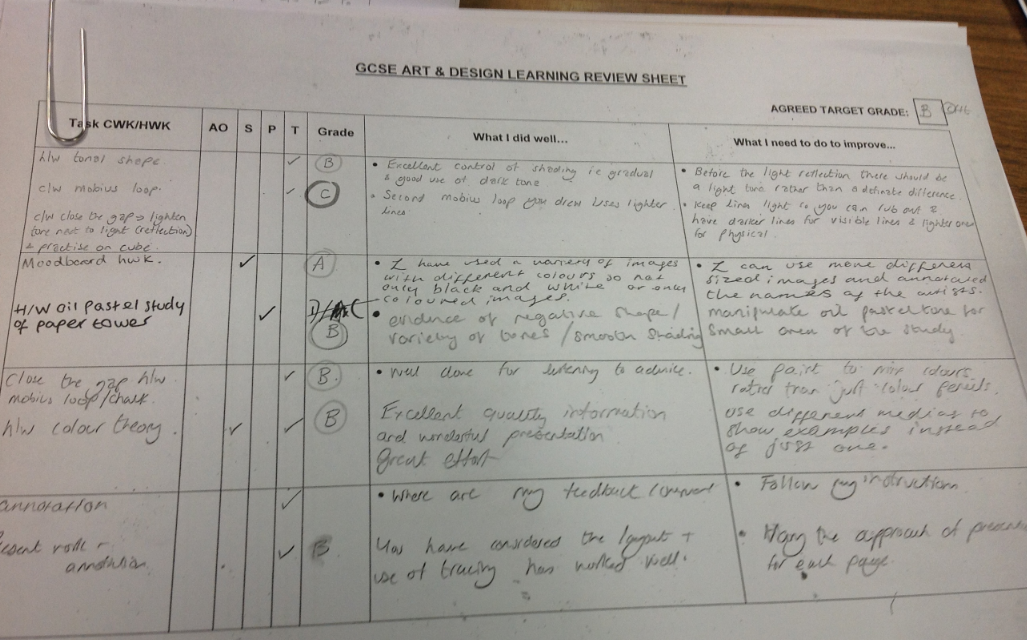 GCSE ART & DESIGN LEARNING REVIEW SHEET
AGREED TARGET GRADE: B
Task CWK/HWK AO S P T Grade What I did well... What I need to do to improve...
h/w tonal shape. ✓ B
• Excellent control of shading ie gradual
& good use of dark tone
• Before the light reflection there should be
a light tone rather than a definate difference
c/w mobius loop. ✓ C
• Second mobius loop you drew uses lighter
lines
• Keep lines light so you can rub out &
have darker lines for visible lines & lighter ones
for physical.
c/w close the gap → lighten
tone next to light (reflection)
& practise on cube.
Moodboard hwk. ✓ A
• I have used a variety of images
with different colours so not
only black and white or only
coloured images.
• I can use more different
sized images and annotated
the names of the artists.
H/W oil pastel study
of paper tower ✓ B
• evidence of negative shape/
variety of tones/smooth shading
manipulate oil pastel tone for
small area of the study.
Close the gap h/w
mobius loop/chalk. ✓ B.
• Well done for listening to advice.
• Use paint to mix colours
rather than just colour pencils.
h/w colour theory. ✓ ✓ B
Excellent quality information
and wonderful presentation
Great effort
use different medias to
show examples instead
of just one.
annotation ✓
• Where are my feedback comment
• Follow my instruction
✓ B
You have considered the layout +
use of tracing has worked well.
• the approach of
for each page.